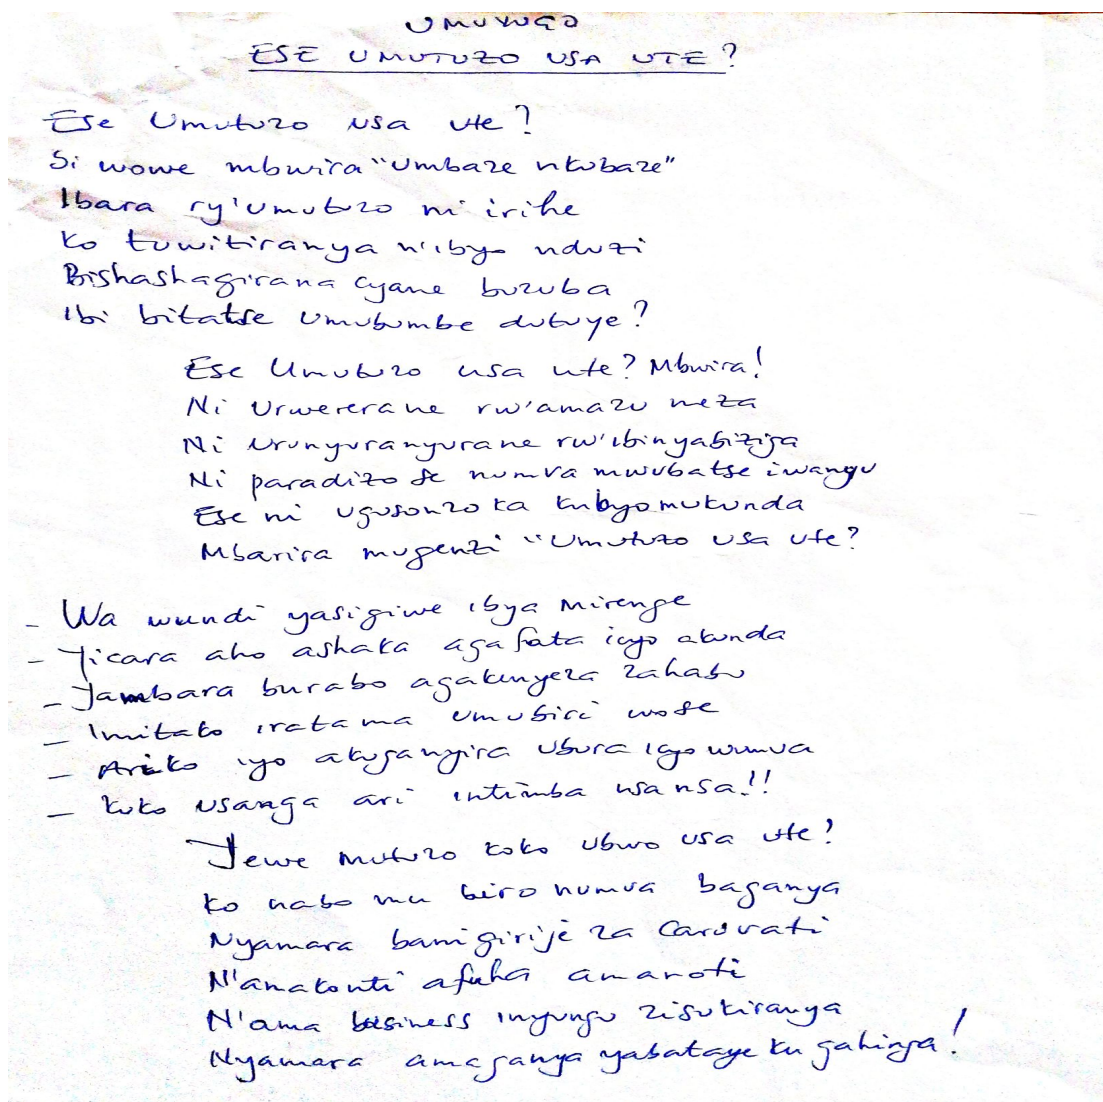 UMUVUGO
ESE UMUTUZO USA UTE?
Ese Umutuzo usa ute?
Si wowe mbwira "umbaze nkubaze"
Ibara ry'umutuzo ni irihe
Ko tuwitiranya n'ibyo nduzi
Bishashagirana cyane buzuba
Ibi bitatse umubumbe dutuye?
Ese Umutuzo usa ute? Mbwira!
Ni Urwererane rw'amazu meza
Ni Urunyuranyurane rw'ibinyabiziga
Ni paradizo se numva mwubatse iwanyu
Ese ni ugusonzoka kubyo mukunda
Mbarira mugenzi "Umutuzo usa ute?
- Wa wundi yasigiwe ibya Mirenge
- Yicara aho ashaka agafata icyo akunda
- Yambara burabo agakenyeza zahabu
- Imitako iratama umubiri wose
- Ariko iyo akuganyira ubura icyo wumva
- Koko usanga ari intimba usa nsa!!
Yewe mutuzo koko ubwo usa ute?
Ko nabo mu biro numva baganya
Nyamara bamigirije za Caruvati
N'amakonti afuha amanoti
N'ama business inyungu zisukiranya
Nyamara amaganya yabataye ku gahinga!